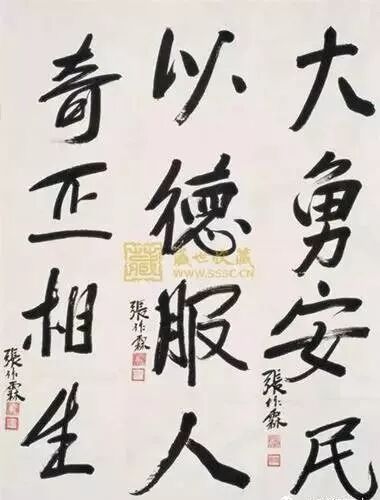 大勇安民
張作霖
以德服人
張作霖
奇正相生
張作霖
藏
盛世收藏
WWW.SSSC.CN